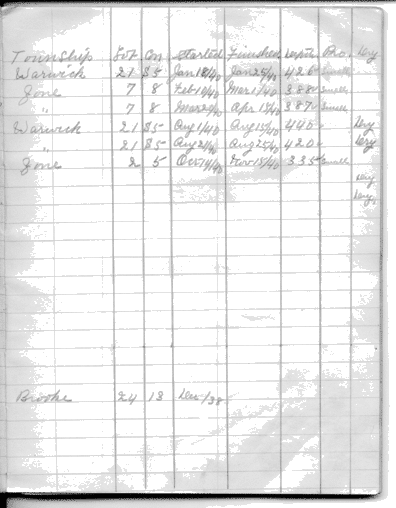 Township Lot Con Started Finished Depth Pro. Dry
Warwick 21 S5 Jan 18/40 Jan 25/40 426 Small
Zone 7 8 Feb 10/40 Mar 1/40 388 Small
" 7 8 Apr 15/40 387 Small
Warwick 21 S5 Aug 1/40 Aug 15/40 440 Dry
" 21 S5 Aug 21/40 Aug 25/40 420 Dry
Zone 2 5 Oct 14/40 Nov 15/40 335 Small
Dry
Dry
Brooke 24 13 Dec/38